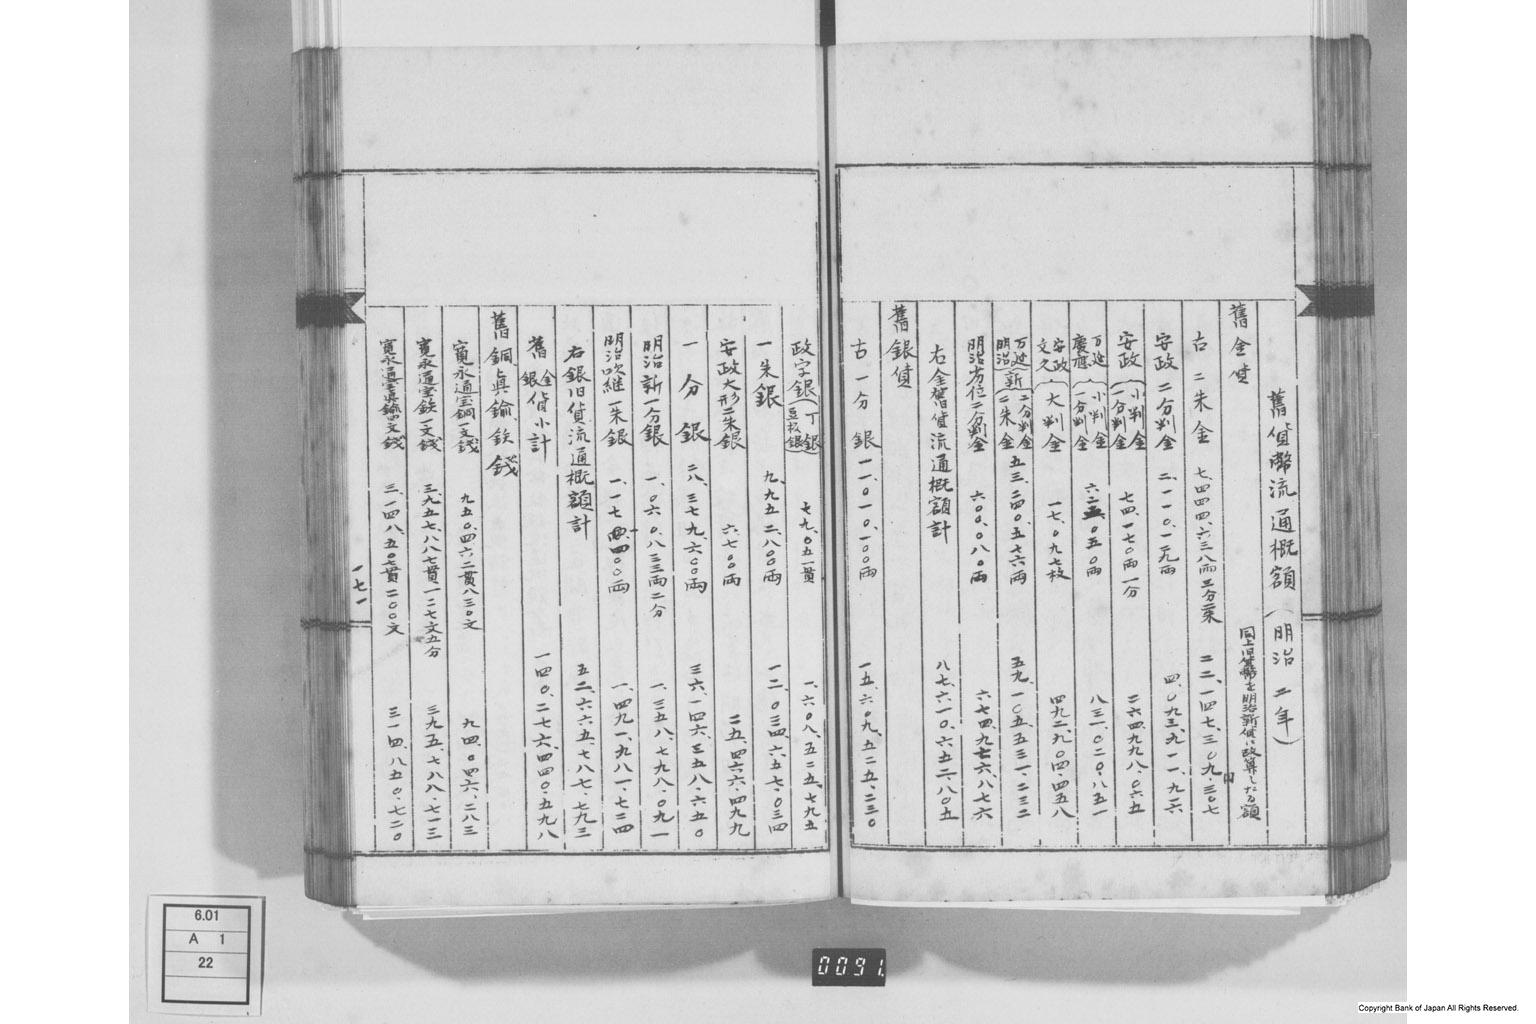 舊貨幣流通概額(明治二年)
舊金貨 同上旧貨幣を明治新貨に改算したる額
古二朱金 七四四四、六三八両三分二朱 二二、一四七、三〇九、三〇七
安政二分判金 二、一一〇、一一九両 四、〇九三、九一一、九二六
安政(小判金 一分判金 七四、一七〇両一分 二六四、九九八、〇六五
万延 慶應(小判金 一分判金 八三一、〇二〇、八五一
安政 文久(大判金 一七、〇九七枚 四九二、九〇四、四五八
万延 明治(新)二分判金 二朱金 五三、二四〇、五七六両 五九、一〇五、五三一、二三二
明治劣位二分判金 六〇〇、〇八〇両 六七四、九七六、八七六
右金舊貨流通概額計 八七、六一〇、六五二、八〇五
舊銀貨
古一分銀 一一、〇一〇、一〇〇両 一五、六〇九、五二五、二三〇
政字銀(丁銀 豆板銀) 七九、〇五一貫 一、六〇八、五二五、七九五
一朱銀 九、九五二、八〇〇両 一二、〇三四、六五七、〇三四
安政大形二朱銀 六、七〇〇両 二五、四六六、四九九
一分銀 二八、三七九、六〇〇両 三六、一四六、三五八、六五〇
明治新一分銀 一、〇六〇、八三三両二分 一、三五八、七九八、〇九一
明治吹継一朱銀 一、一七 四〇〇両 一、四九一、九八一、七三四
右銀旧貨流通概額計 五二、六六五、七八七、七九三
舊金銀貨小計 一四〇、二七六、四四〇、五九八
舊銅眞鍮鉄錢
寛永通宝銅一文錢 九五〇、四六二貫八三〇文 九四、〇四六、二八三
寛永通宝鉄一文錢 三、九五七、八八七貫一二七文五分 三九五、七八八、七一三
寛永通宝眞鍮四文錢 三、一四八、五〇七貫二〇〇文 三一四、八五〇、七二〇
一七一
6.01
A 1
22
0091
Copyright Bank of Japan All Rights Reserved.